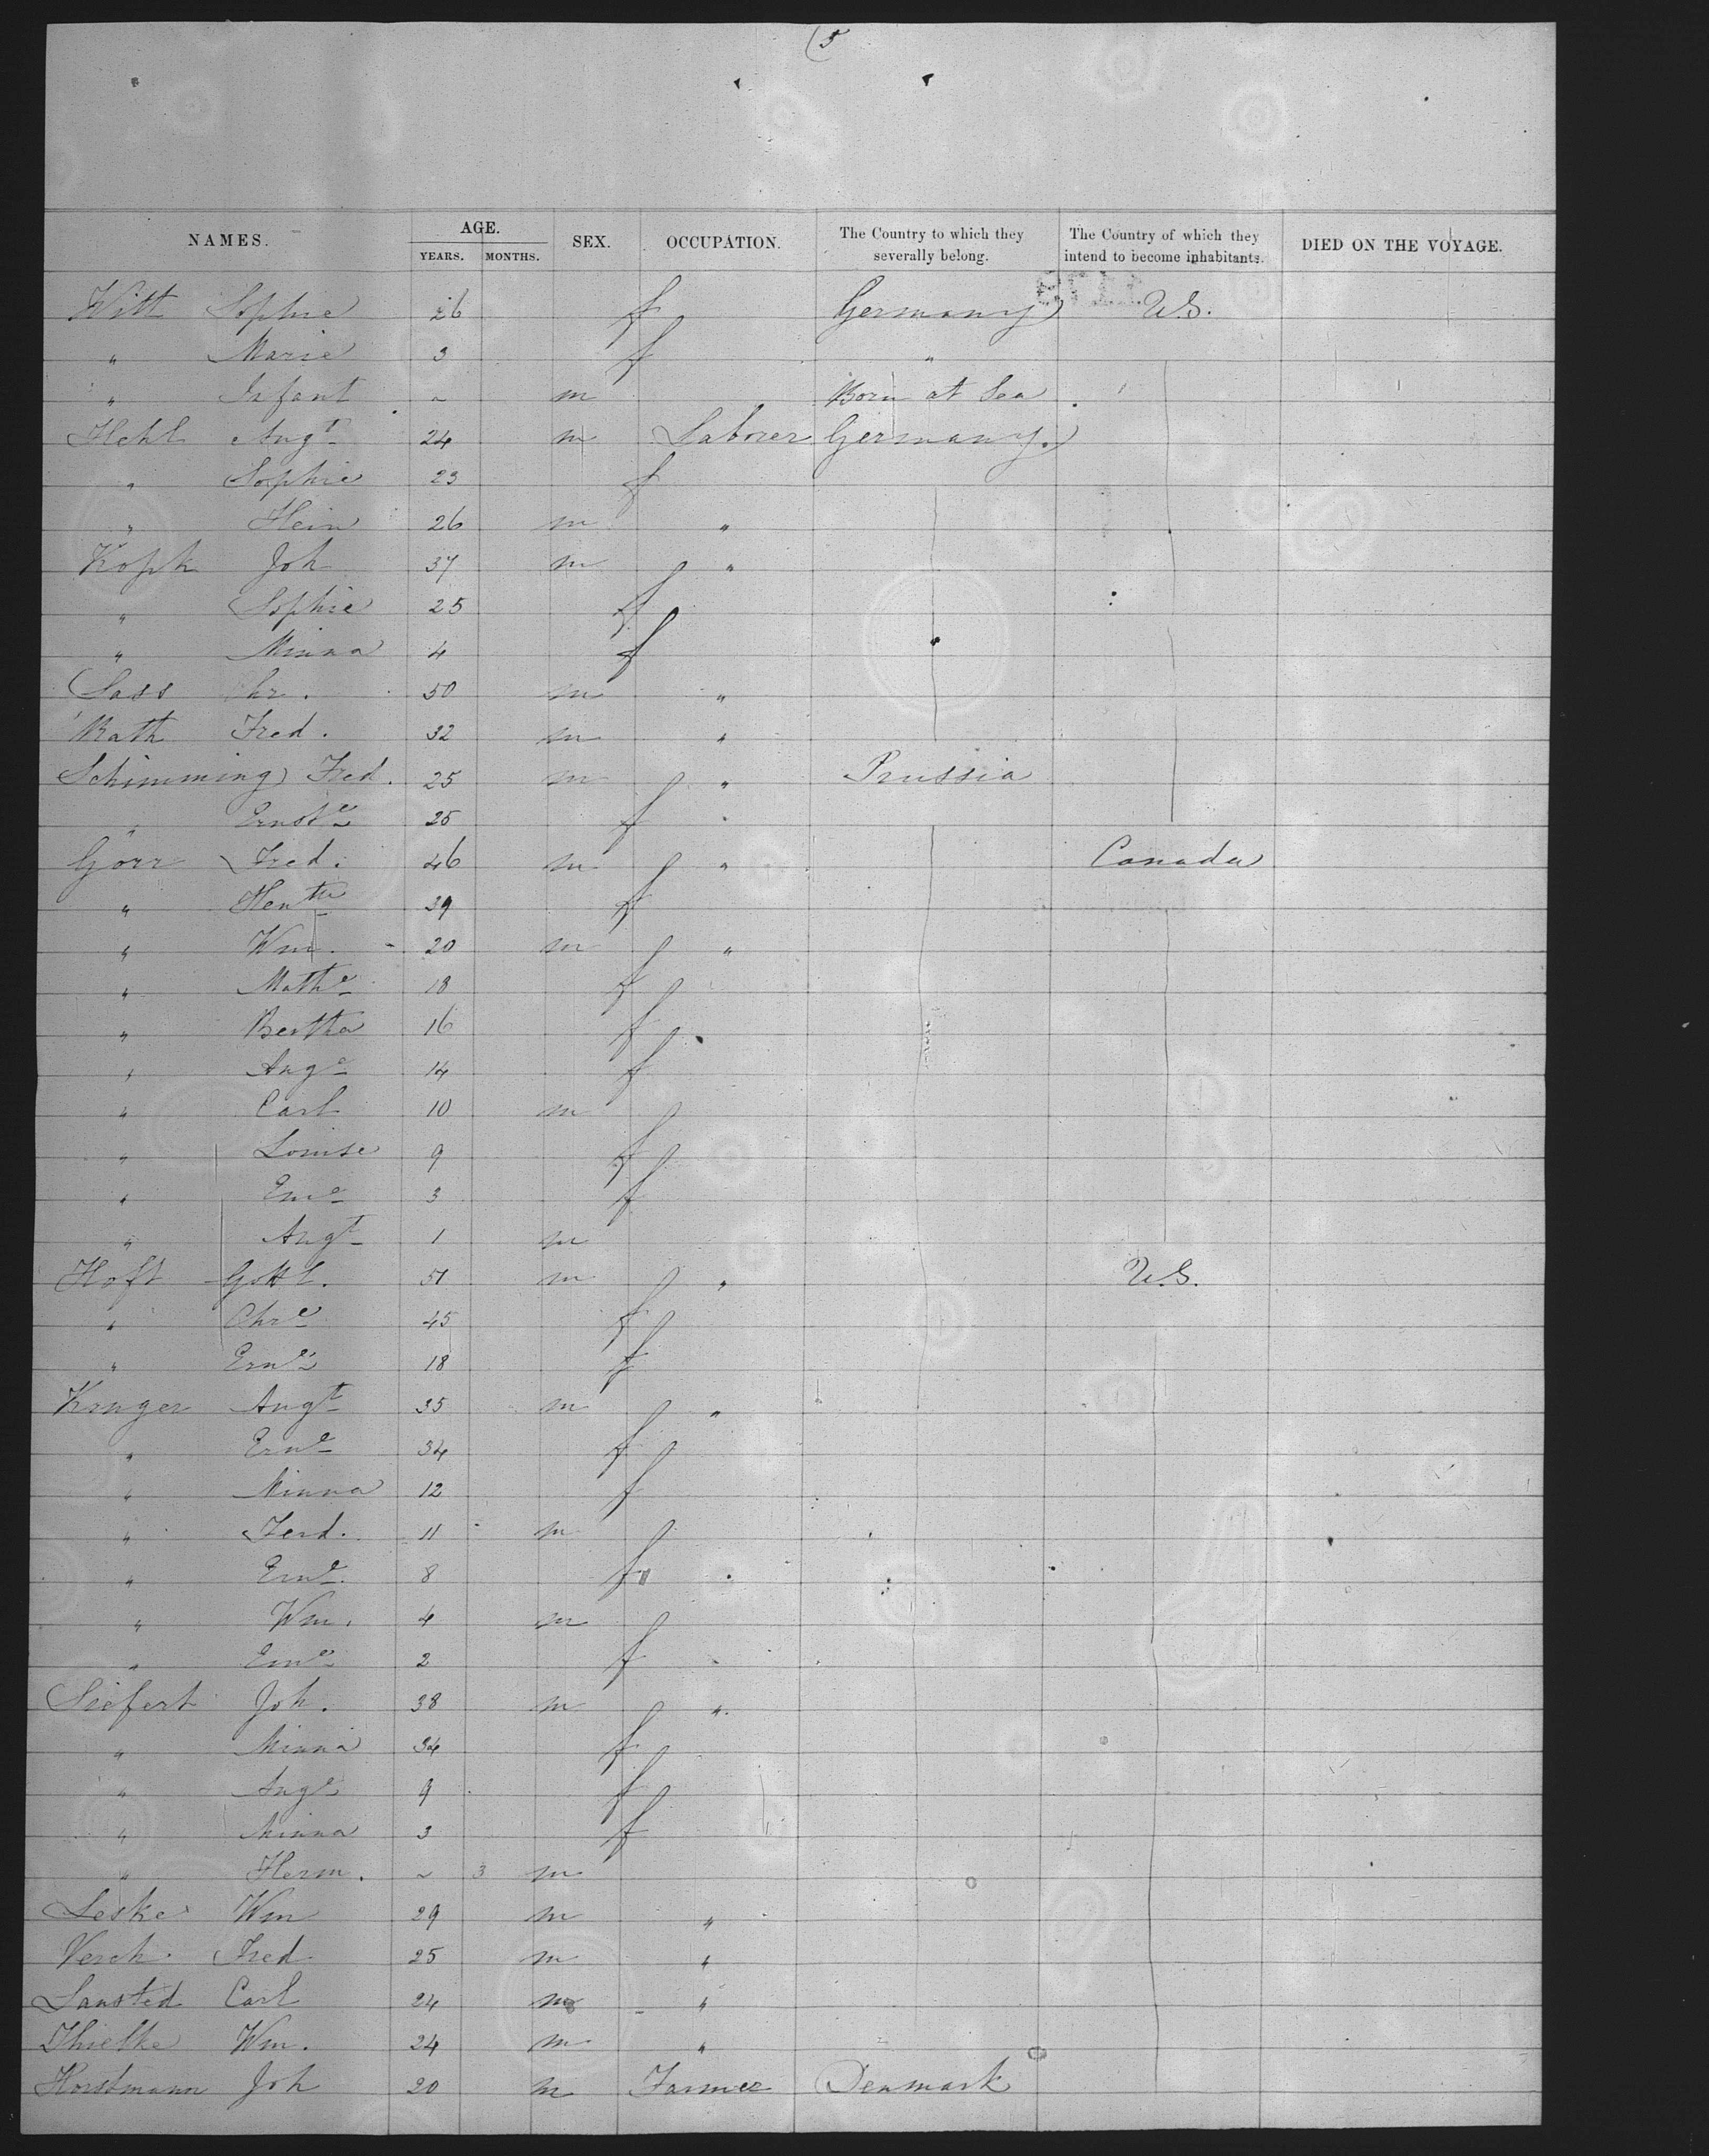 5
NAMES. AGE. SEX. OCCUPATION. The Country to which they severally belong. The Country of which they intend to become inhabitants. DIED ON THE VOYAGE.
YEARS. MONTHS.
Witt Sophie 26 f Germany U.S.
" Marie 3 f "
" Infant ~ m Born at Sea
Hehl Augt 24 m Laborer Germany.
" Sophie 23 f
" Hein 26 m "
Kopk Joh 37 m "
" Sophie 25 f
" Minna 4 f
Sass Chr. 50 m "
Rath Fred. 32 m "
Schimming Fred. 25 m " Prussia
" Ernste 25 f
Gorr Fred. 46 m " Canada
" Hentte 39 f
" Wm. 20 m "
" Mathe 18 f
" Bertha 16 f
" Auge 14 f
" Carl 10 m
" Louise 9 f
" Eme 3 f
" Augt 1 m
Hoft Gottl. 51 m " U.S.
" Chre 45 f
" Erne 18 f
Kruger Augt 35 m "
" Erne 34 f
" Minna 12 f
" Ferd. 11 m
" Erne. 8 f
" Wm. 4 m
" Eme 2 f
Siefert Joh. 38 m "
" Minna 34 f
" Auge 9 f
" Minna 3 f
" Herm. ~ 3 m
Leske Wm 29 m "
Verch Fred 25 m "
Lansted Carl 24 m "
Thielke Wm. 24 m "
Horstmann Joh 20 m Farmer Denmark